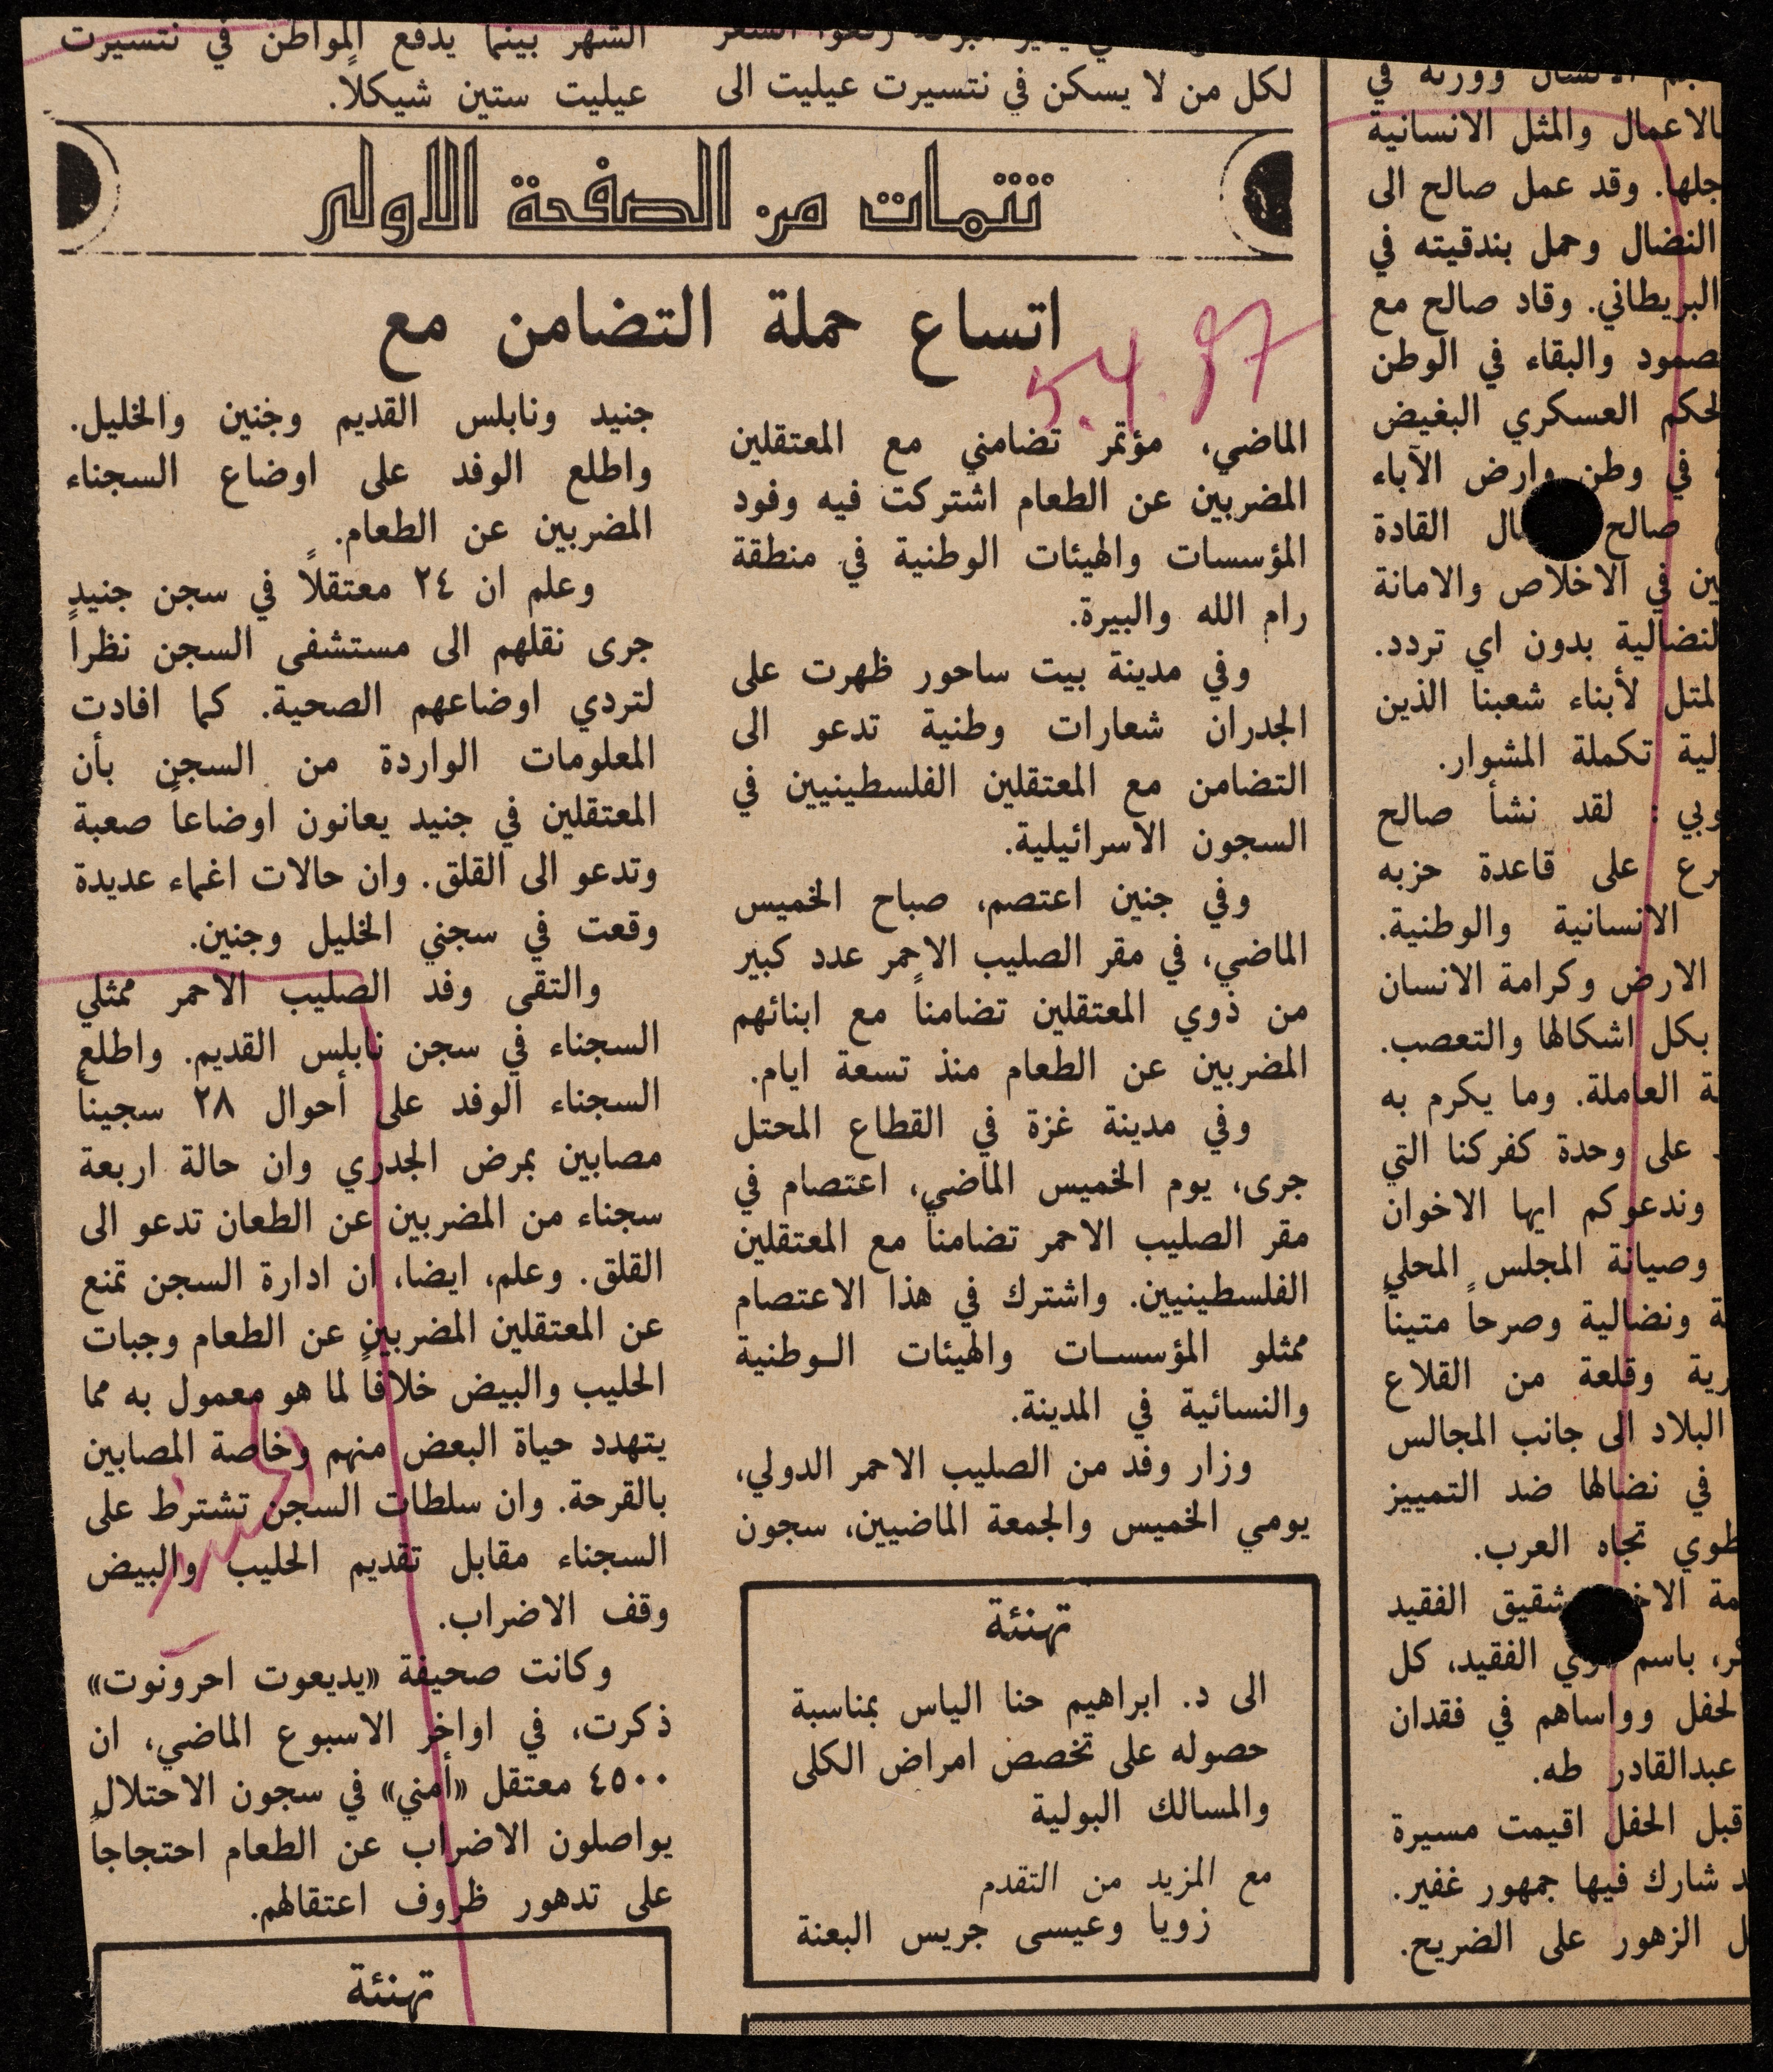 جم الانسان وورثه في
بالاعمال والمثل الانسانية
جلها. وقد عمل صالح الى
النضال وحمل بندقيته في
البريطاني. وقاد صالح مع
صمود والبقاء في الوطن
لحكم العسكري البغيض
في وطن وارض الآباء
صالح القادة
ين في الاخلاص والامانة
لنضالية بدون اي تردد.
لمتل لأبناء شعبنا الذين
لية تكملة المشوار.
وبي : لقد نشأ صالح
رع على قاعدة حزبه
الانسانية والوطنية.
الارض وكرامة الانسان
بكل اشكالها والتعصب.
ة العاملة. وما يكرم به
على وحدة كفركنا التي
وندعوكم ايها الاخوان
وصيانة المجلس المحلي
ة ونضالية وصرحاً متيناً
رية وقلعة من القلاع
البلاد الى جانب المجالس
في نضالها ضد التمييز
طوي تجاه العرب.
مة شقيق الفقيد
كر، باسم الفقيد، كل
لحفل وواساهم في فقدان
عبدالقادر طه.
قبل الحفل اقيمت مسيرة
د شارك فيها جمهور غفير.
ل الزهور على الضريح.
لكل من لا يسكن في نتسيرت عيليت الى
الشهر بينما يدفع المواطن في نتسيرت
عيليت ستين شيكلاً.
تتمات من الصفحة الاولى
اتساع حملة التضامن مع
5.4.87
الماضي، مؤتمر تضامني مع المعتقلين
المضربين عن الطعام اشتركت فيه وفود
المؤسسات والهيئات الوطنية في منطقة
رام الله والبيرة.
وفي مدينة بيت ساحور ظهرت على
الجدران شعارات وطنية تدعو الى
التضامن مع المعتقلين الفلسطينيين في
السجون الاسرائيلية.
وفي جنين اعتصم، صباح الخميس
الماضي، في مقر الصليب الاحمر عدد كبير
من ذوي المعتقلين تضامناً مع ابنائهم
المضربين عن الطعام منذ تسعة ايام.
وفي مدينة غزة في القطاع المحتل
جرى، يوم الخميس الماضي، اعتصام في
مقر الصليب الاحمر تضامناً مع المعتقلين
الفلسطينيين. واشترك في هذا الاعتصام
ممثلو المؤسسات والهيئات الوطنية
والنسائية في المدينة.
وزار وفد من الصليب الاحمر الدولي،
يومي الخميس والجمعة الماضيين، سجون
جنيد ونابلس القديم وجنين والخليل.
واطلع الوفد على اوضاع السجناء
المضربين عن الطعام.
وعلم ان ٢٤ معتقلاً في سجن جنيد
جرى نقلهم الى مستشفى السجن نظراً
لتردي اوضاعهم الصحية. كما افادت
المعلومات الواردة من السجن بأن
المعتقلين في جنيد يعانون اوضاعاً صعبة
وتدعو الى القلق. وان حالات اغماء عديدة
وقعت في سجني الخليل وجنين.
والتقى وفد الصليب الاحمر ممثلي
السجناء في سجن نابلس القديم. واطلع
السجناء الوفد على أحوال ٢٨ سجيناً
مصابين بمرض الجدري وان حالة اربعة
سجناء من المضربين عن الطعان تدعو الى
القلق. وعلم، ايضا، ان ادارة السجن تمنع
عن المعتقلين المضربين عن الطعام وجبات
الحليب والبيض خلافاً لما هو معمول به مما
يتهدد حياة البعض منهم وخاصة المصابين
بالقرحة. وان سلطات السجن تشترط على
السجناء مقابل تقديم الحليب والبيض
وقف الاضراب.
وكانت صحيفة «يديعوت احرونوت»
ذكرت، في اواخر الاسبوع الماضي، ان
٤٥٠٠ معتقل «أمني» في سجون الاحتلال
يواصلون الاضراب عن الطعام احتجاجاً
على تدهور ظروف اعتقالهم.
تهنئة
الى د. ابراهيم حنا الياس بمناسبة
حصوله على تخصص امراض الكلى
والمسالك البولية
مع المزيد من التقدم
زويا وعيسى جريس البعنة
تهنئة